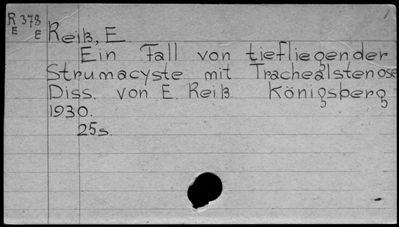 R 378
E E
Reiß, E
Ein Fall von tiefliegender
Strumacyste mit Trachealstenose
Diss. von E. Reiß Königsberg
1930.
25s.